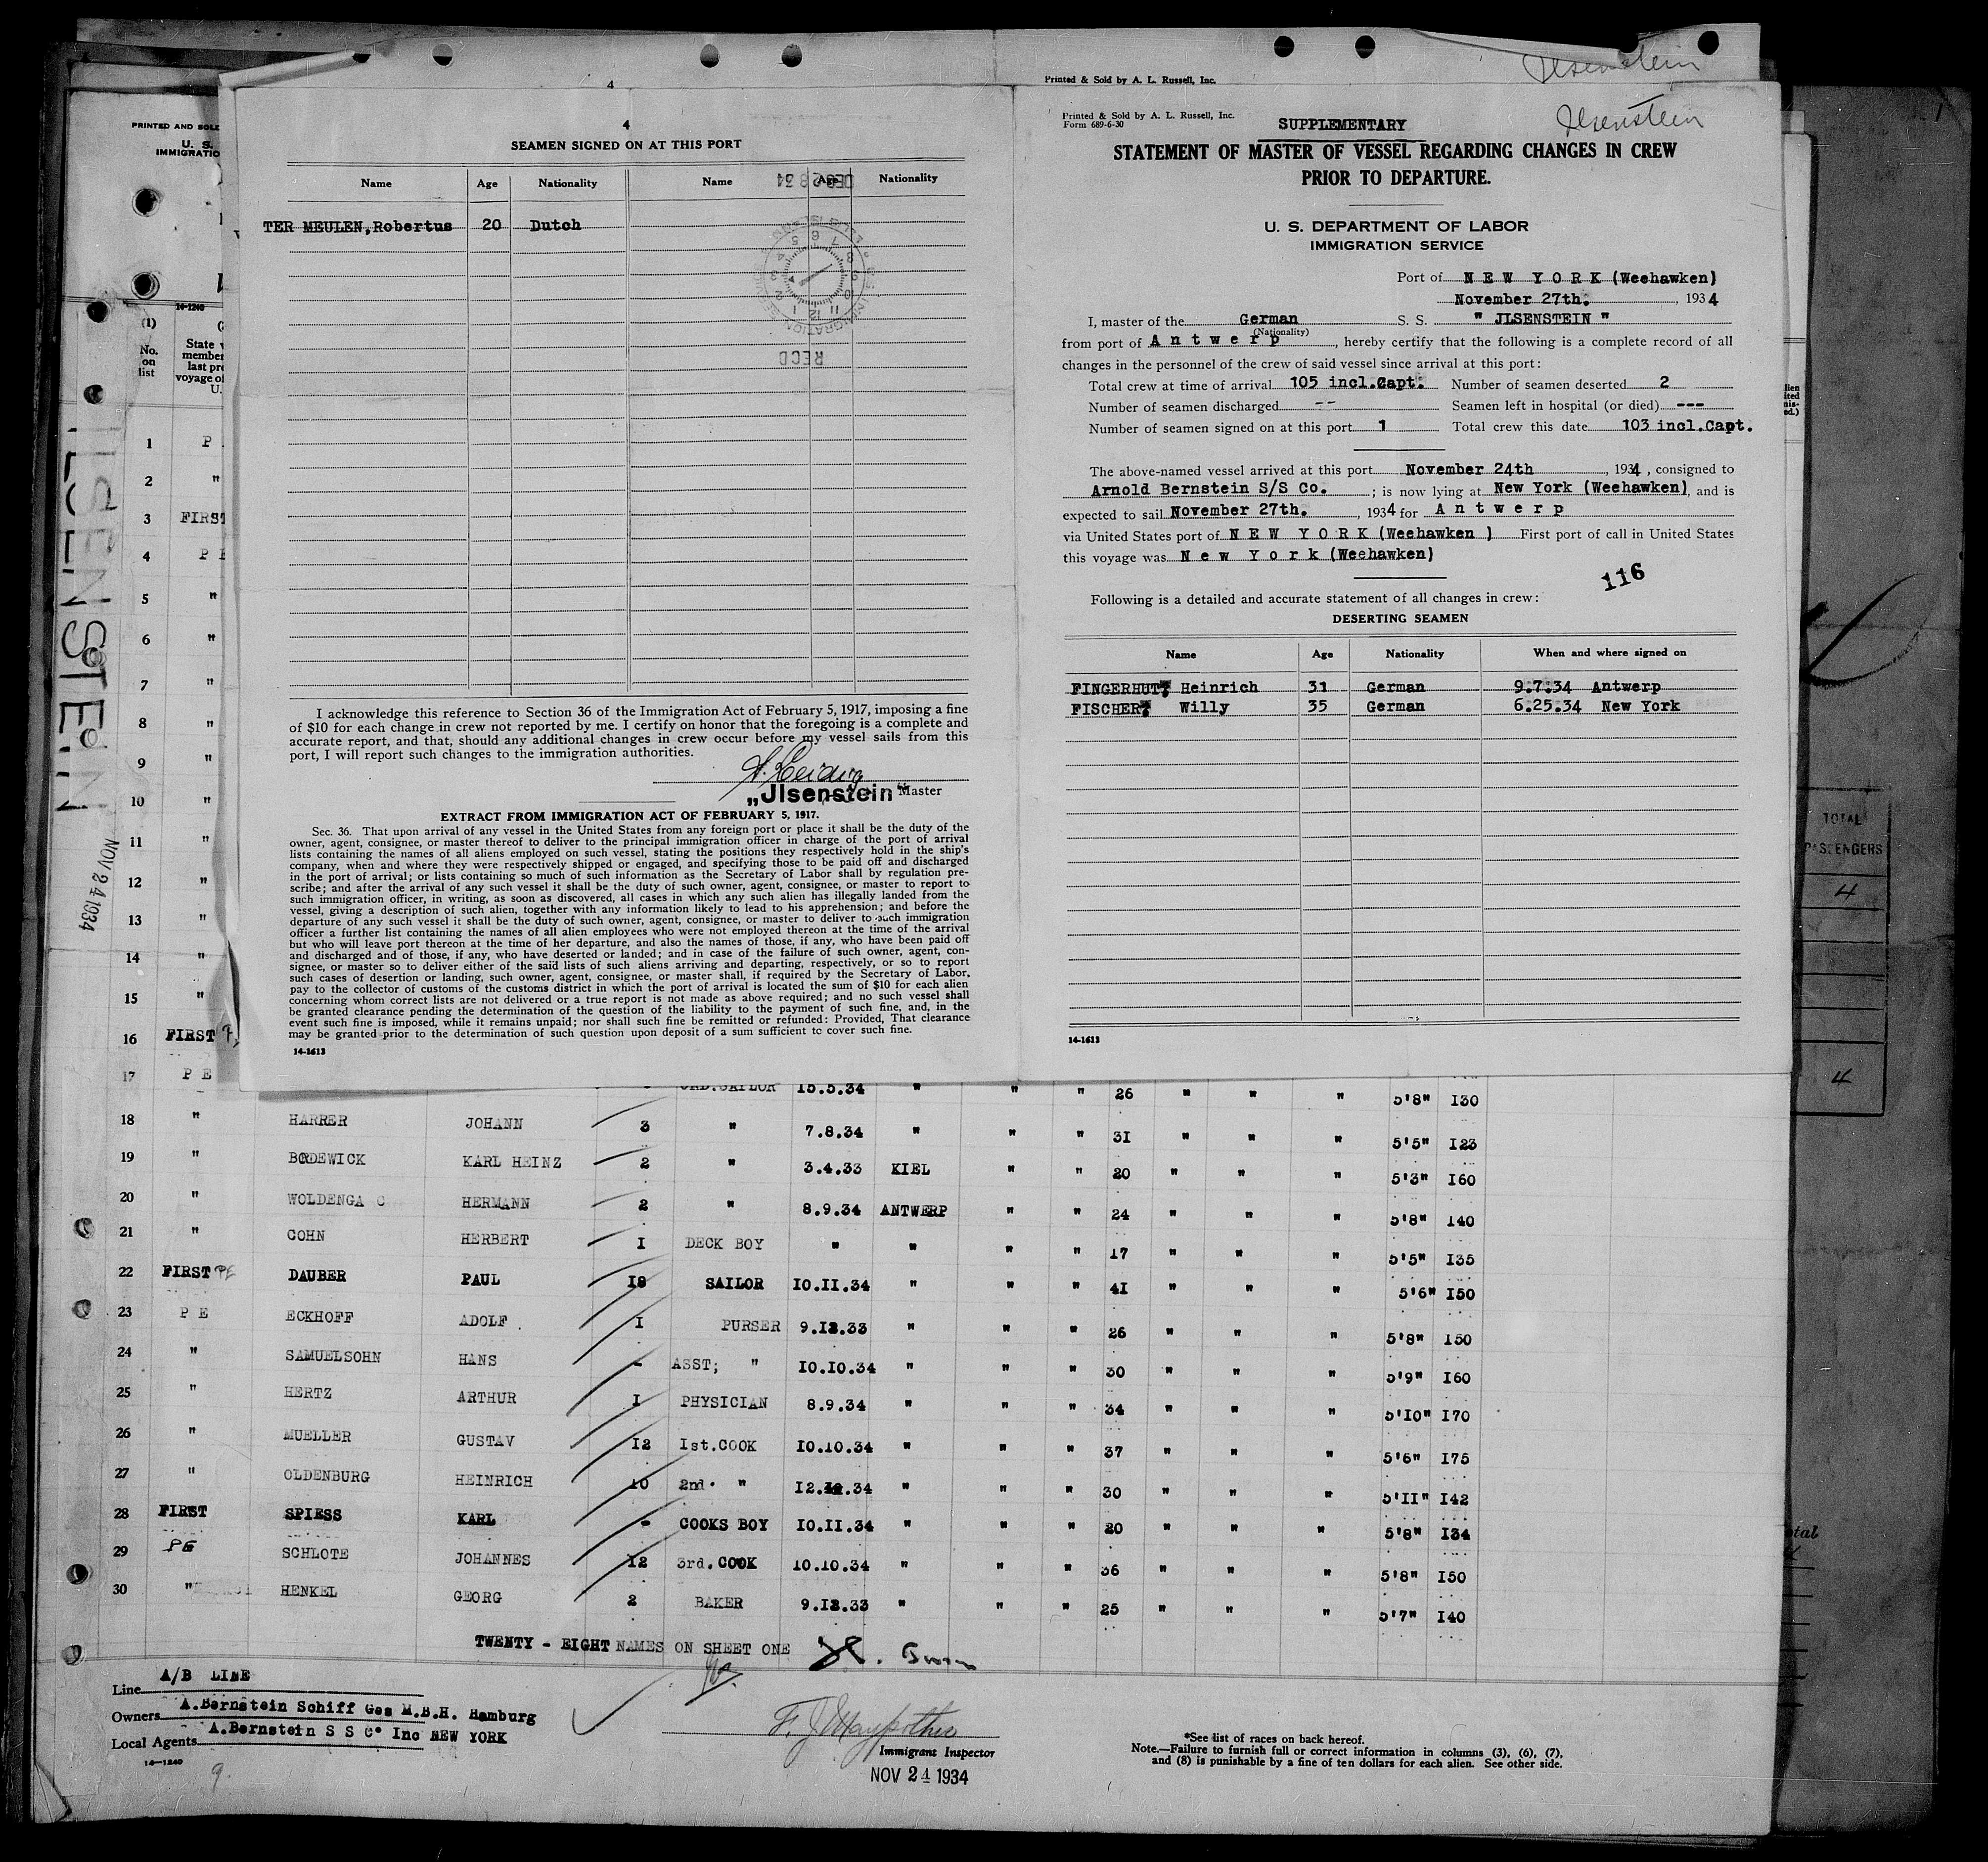 4
Printed & Sold by A. L. Russell, Inc.
Jlsenstein
4
SEAMEN SIGNED ON AT THIS PORT
Name Age Nationality Name Age Nationality
DEC 28 34
TER MEULEN, Robertus 20 Dutch
RECD
I acknowledge this reference to Section 36 of the Immigration Act of February 5, 1917, imposing a fine
of $10 for each change in crew not reported by me. I certify on honor that the foregoing is a complete and
accurate report, and that, should any additional changes in crew occur before my vessel sails from this
port, I will report such changes to the immigration authorities.
„Jlsenstein“ Master
EXTRACT FROM IMMIGRATION ACT OF FEBRUARY 5, 1917.
Sec. 36. That upon arrival of any vessel in the United States from any foreign port or place it shall be the duty of the
owner, agent, consignee, or master thereof to deliver to the principal immigration officer in charge of the port of arrival
lists containing the names of all aliens employed on such vessel, stating the positions they respectively hold in the ship's
company, when and where they were respectively shipped or engaged, and specifying those to be paid off and discharged
in the port of arrival; or lists containing so much of such information as the Secretary of Labor shall by regulation pre-
scribe; and after the arrival of any such vessel it shall be the duty of such owner, agent, consignee, or master to report to
such immigration officer, in writing, as soon as discovered, all cases in which any such alien has illegally landed from the
vessel, giving a description of such alien, together with any information likely to lead to his apprehension; and before the
departure of any such vessel it shall be the duty of such owner, agent, consignee, or master to deliver to such immigration
officer a further list containing the names of all alien employees who were not employed thereon at the time of the arrival
but who will leave port thereon at the time of her departure, and also the names of those, if any, who have been paid off
and discharged and of those, if any, who have deserted or landed; and in case of the failure of such owner, agent, con-
signee, or master so to deliver either of the said lists of such aliens arriving and departing, respectively, or so to report
such cases of desertion or landing, such owner, agent, consignee, or master shall, if required by the Secretary of Labor,
pay to the collector of customs of the customs district in which the port of arrival is located the sum of $10 for each alien
concerning whom correct lists are not delivered or a true report is not made as above required; and no such vessel shall
be granted clearance pending the determination of the question of the liability to the payment of such fine, and, in the
event such fine is imposed, while it remains unpaid; nor shall such fine be remitted or refunded: Provided, That clearance
may be granted prior to the determination of such question upon deposit of a sum sufficient to cover such fine.
14-1613
Printed & Sold by A. L. Russell, Inc.
Form 689-6-30
SUPPLEMENTARY
Jlsenstein
STATEMENT OF MASTER OF VESSEL REGARDING CHANGES IN CREW
PRIOR TO DEPARTURE.
U. S. DEPARTMENT OF LABOR
IMMIGRATION SERVICE
Port of NEW YORK (Weehawken)
November 27th. , 1934
I, master of the German S. S. " JLSENSTEIN "
(Nationality)
from port of Antwerp , hereby certify that the following is a complete record of all
changes in the personnel of the crew of said vessel since arrival at this port:
Total crew at time of arrival 105 incl.Capt. Number of seamen deserted 2
Number of seamen discharged -- Seamen left in hospital (or died) ---
Number of seamen signed on at this port 1 Total crew this date 103 incl.Capt.
The above-named vessel arrived at this port November 24th , 1934 , consigned to
Arnold Bernstein S/S Co. ; is now lying at New York (Weehawken), and is
expected to sail November 27th. , 1934 for Antwerp
via United States port of NEW YORK (Weehawken ) First port of call in United States
this voyage was New York (Weehawken)
116
Following is a detailed and accurate statement of all changes in crew:
DESERTING SEAMEN
Name Age Nationality When and where signed on
FINGERHUT, Heinrich 31 German 9.7.34 Antwerp
FISCHER, Willy 35 German 6.25.34 New York
14-1613
PRINTED AND SOLD
U. S.
IMMIGRATIO
14-1240
(1)
No.
on
list
State
member
last pre
voyage of
U.
JLSENSTEIN
NOV 24 1934
1 P
2 "
3 FIRST
4 P E
5 "
6 "
7 "
8 "
9 "
10 "
11 "
12 "
13 "
14 "
15 "
16 FIRST
17 P E ORD.SAILOR 15.5.34 " " " 26 " " " 5'8" 130
18 " HARRER JOHANN 3 " 7.8.34 " " " 31 " " " 5'5" 123
19 " BODEWICK KARL HEINZ 2 " 3.4.33 KIEL " " 20 " " " 5'3" 160
20 " WOLDENGA C HERMANN 2 " 8.9.34 ANTWERP " " 24 " " " 5'8" 140
21 " COHN HERBERT I DECK BOY " " " " 17 " " " 5'5" 135
22 FIRST PE DAUBER PAUL 18 SAILOR 10.11.34 " " " 41 " " " 5'6" 150
23 P E ECKHOFF ADOLF I PURSER 9.12.33 " " " 26 " " " 5'8" 150
24 " SAMUELSOHN HANS - ASST; " 10.10.34 " " " 30 " " " 5'9" 160
25 " HERTZ ARTHUR I PHYSICIAN 8.9.34 " " " 34 " " " 5'10" 170
26 " MUELLER GUSTAV 12 1st.COOK 10.10.34 " " " 37 " " " 5'6" 175
27 " OLDENBURG HEINRICH 10 2nd. " 12.10.34 " " " 30 " " " 5'11" 142
28 FIRST SPIESS KARL - COOKS BOY 10.11.34 " " " 20 " " " 5'8" 134
29 PE SCHLOTE JOHANNES 12 3rd.COOK 10.10.34 " " " 36 " " " 5'8" 150
30 " HENKEL GEORG 2 BAKER 9.12.33 " " " 25 " " " 5'7" 140
TWENTY - EIGHT NAMES ON SHEET ONE
Line A/B LINE
Owners A.Bernstein Schiff Ges M.B.H. Hamburg
Local Agents A.Bernstein S S Co Inc NEW YORK
14-1240
9.
Immigrant Inspector
NOV 24 1934
*See list of races on back hereof.
Note.—Failure to furnish full or correct information in columns (3), (6), (7),
and (8) is punishable by a fine of ten dollars for each alien. See other side.
TOTAL
PASSENGERS
4
4